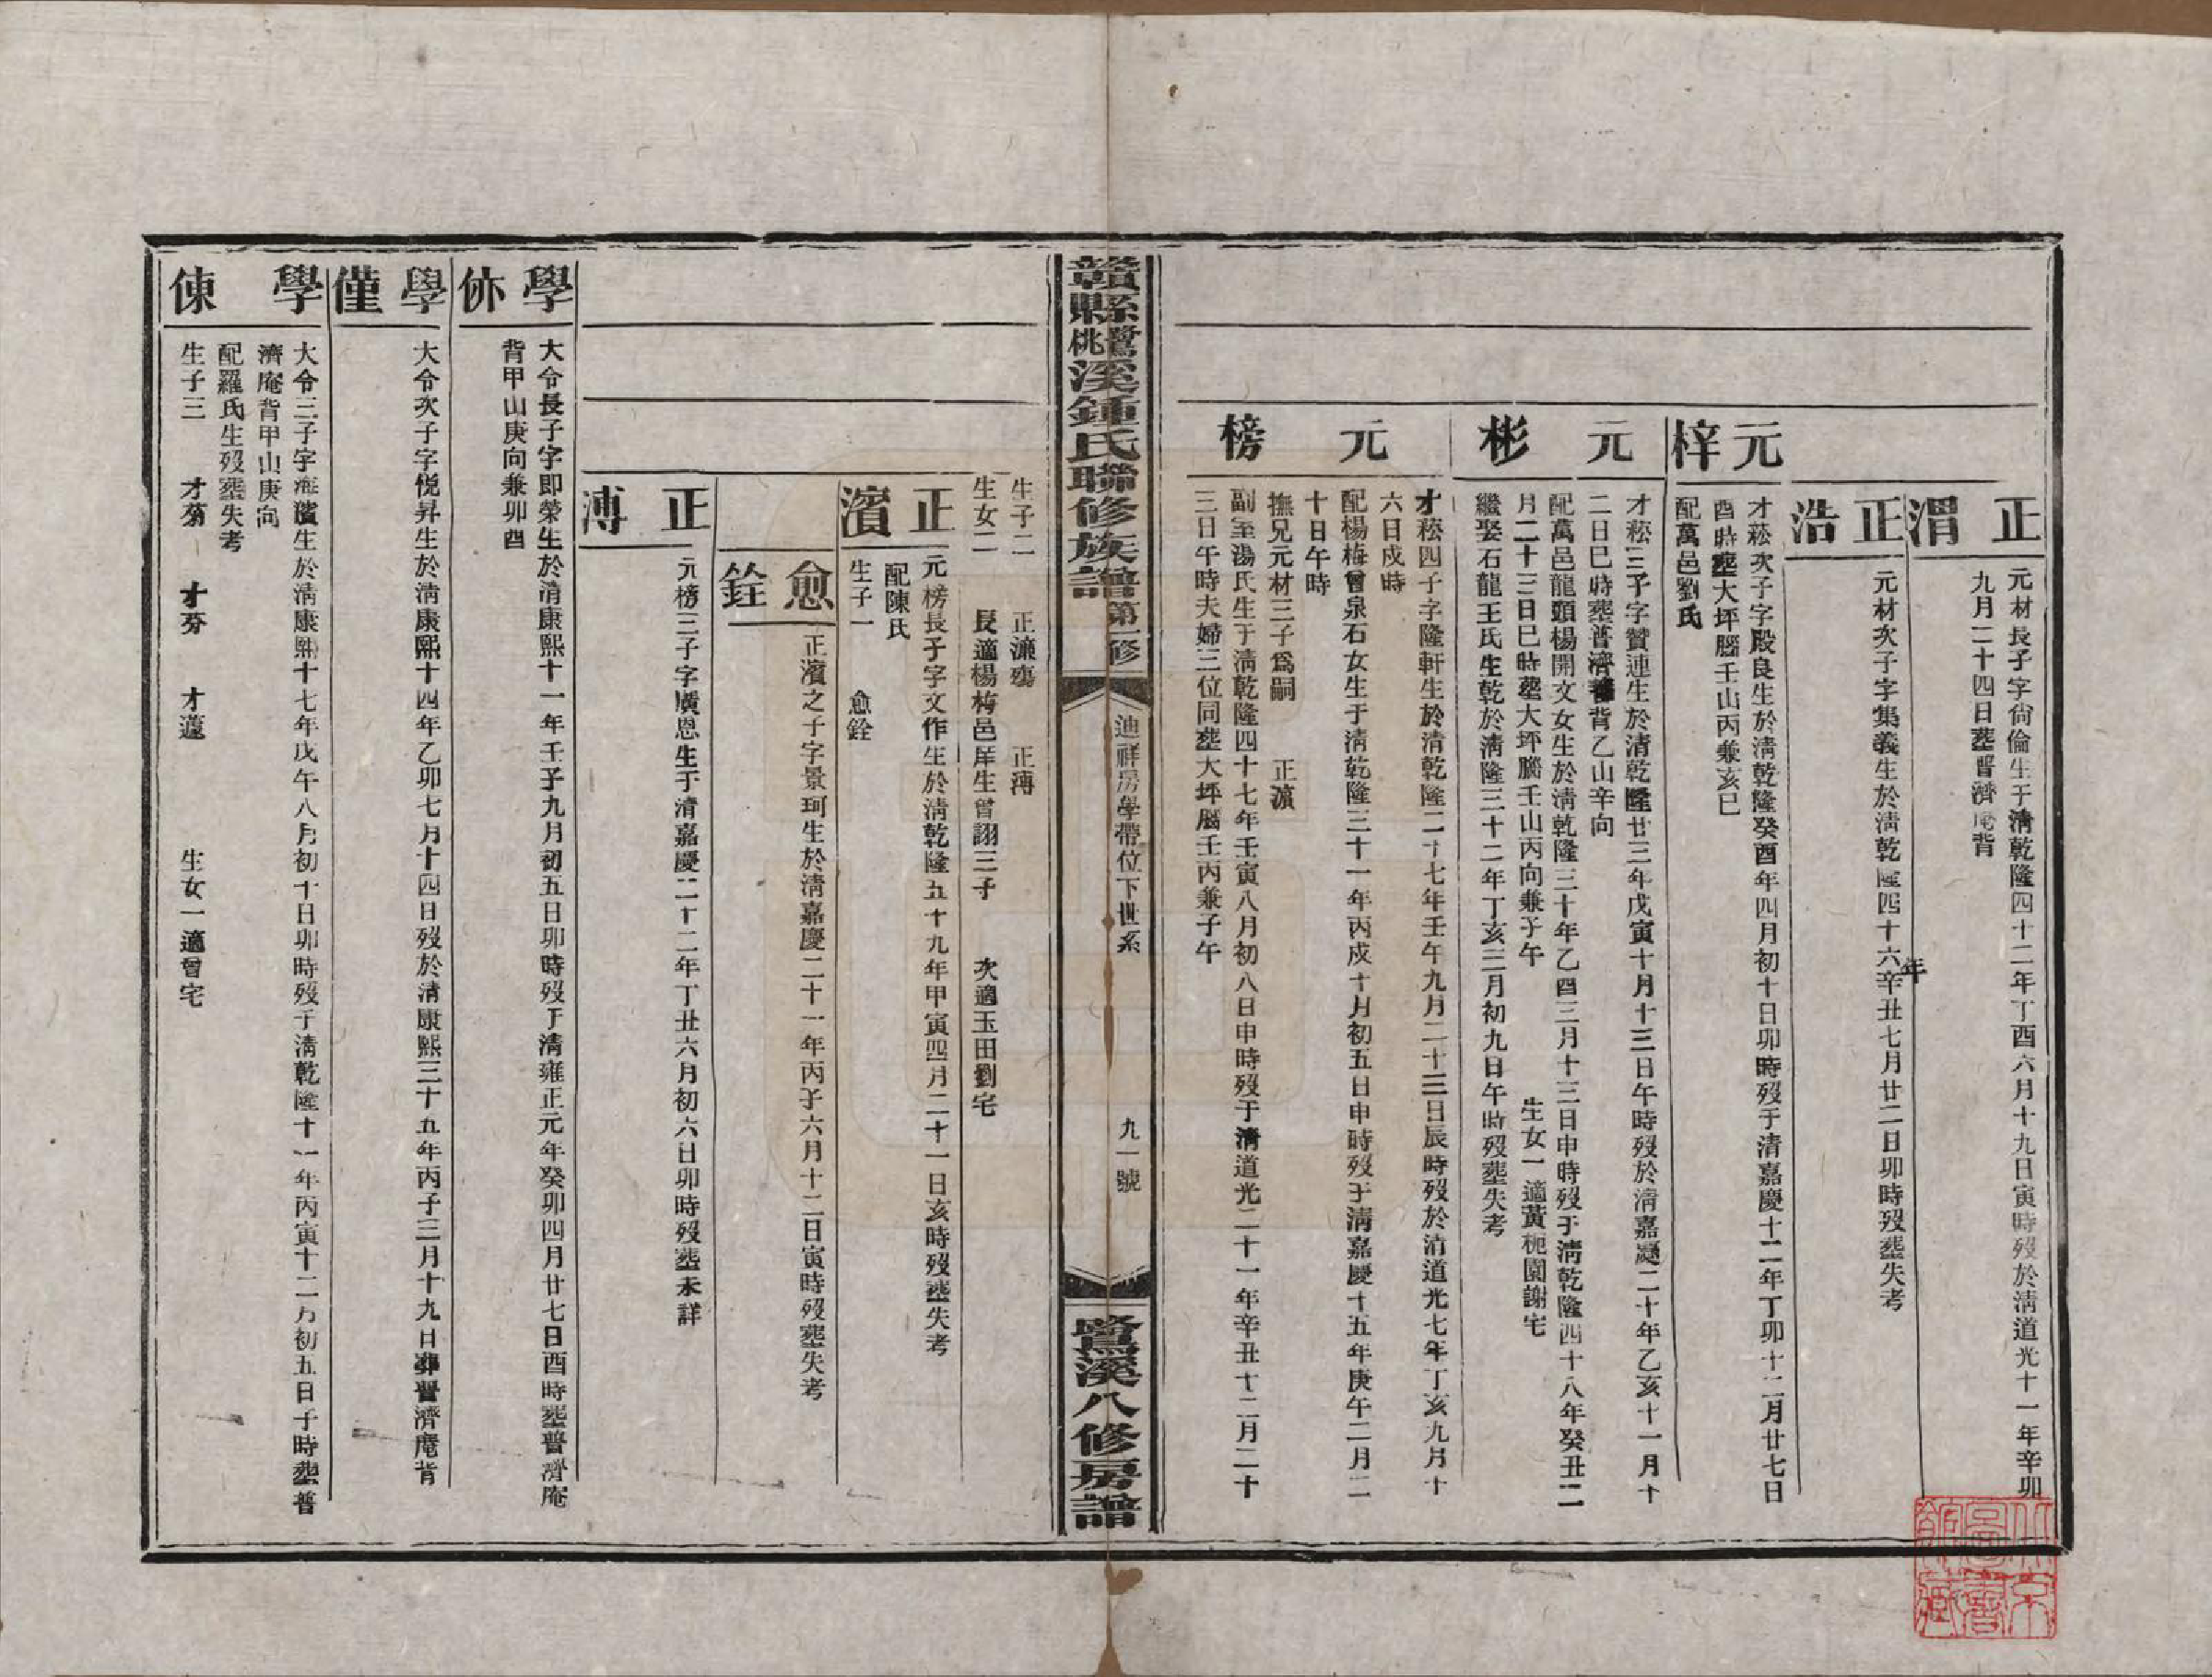 正渭
元材長子字尙倫生于淸乾隆四十二年丁酉六月十九日寅時歿於淸道光十一年辛卯
九月二十四日塟普濟庵背
正浩
元材次子字集義生於淸乾隆四十六年辛丑七月廿二日卯時歿塟失考
元梓
才菘次子字殿良生於淸乾隆癸酉年四月初十日卯時歿于清嘉慶十二年丁卯十二月廿七日
酉時塟大坪腦壬山丙兼亥巳
配萬邑劉氏
元彬
才菘三子字贊連生於清乾隆廿三年戊寅十月十三日午時歿於淸嘉慶二十年乙亥十一月十
二日巳時塟普濟菴背乙山辛向
配萬邑龍頭楊開文女生於淸乾隆三十年乙酉三月十三日申時歿于淸乾隆四十八年癸丑二
月二十三日巳時塟大坪腦壬山丙向兼子午　生女一適黃杝園謝宅
繼娶石龍王氏生乾於淸隆三十二年丁亥三月初九日午時歿塟失考
元榜
才菘四子字隆軒生於淸乾隆二十七年壬午九月二十三日辰時歿於淸道光七年丁亥九月十
六日戌時
配楊梅曾泉石女生于淸乾隆三十一年丙戌十月初五日申時歿于淸嘉慶十五年庚午二月二
十日午時
撫兄元材三子爲嗣　正濵
副室湯氏生于淸乾隆四十七年壬寅八月初八日申時歿于淸道光二十一年辛丑十二月二十
三日午時夫婦三位同塟大坪腦壬丙兼子午
贛縣鷺桃溪鍾氏聯修族譜第一修
迪祥房學帶位下世系
九一號
鷺溪八修房譜
生子二　正濂殤　正溥
生女二　長適楊梅邑庠生曾詡三子　次適玉田劉宅
正濱
元榜長子字文作生於淸乾隆五十九年甲寅四月二十一日亥時歿塟失考
配陳氏
生子一　愈銓
愈銓
正濱之子字景珂生於淸嘉慶二十一年丙子六月十二日寅時歿塟失考
正溥
元榜三子字廣恩生于淸嘉慶二十二年丁丑六月初六日卯時歿塟未詳
學㑊
大令長子字即榮生於淸康熙十一年壬子九月初五日卯時歿于淸雍正元年癸卯四月廿七日酉時塟普濟庵
背甲山庚向兼卯酉
學僅
大令次子字悅昇生於淸康熙十四年乙卯七月十四日歿於淸康熙三十五年丙子三月十九日葬普濟庵背
學倲
大令三子字海濱生於淸康熙十七年戊午八月初十日卯時歿于淸乾隆十一年丙寅十二月初五日子時塟普
濟庵背甲山庚向
配羅氏生歿塟失考
生子三　才蒻　才芬　才蘧　生女一適曾宅
北京圖書館藏